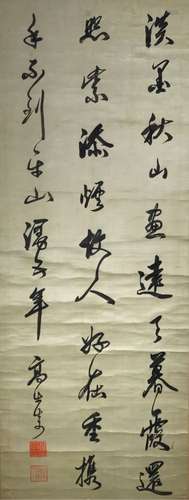 淡墨秋山畫遠天暮霞還
照紫添煙故人好在重攜
手不到平山謾五年 高士奇